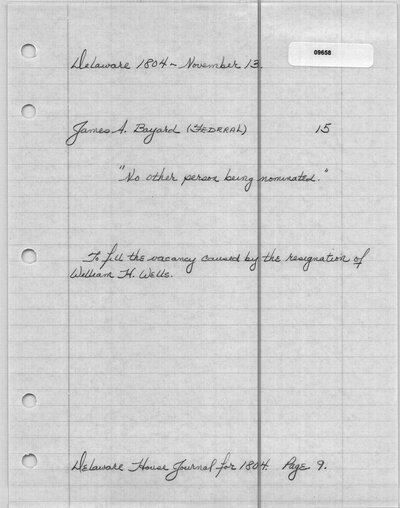 09658
Delaware 1804 - November 13.
James A. Bayard (FEDERAL) 15
"No other person being nominated."
To fill the vacancy caused by the resignation of
William H. Wells.
Delaware House Journal for 1804. Page 9.